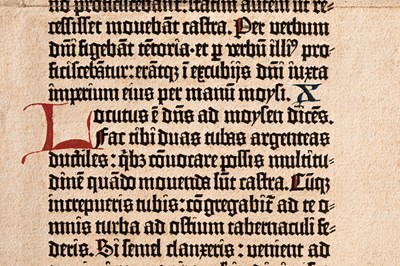 no proficiscebant: statim autem ut re-
cessisset movebant castra. Per verbum
dñi figebant tētoria: et p verbū illi⁹ pro-
ficiscebātur: erātq; ī excubijs dñi iuxta
imperium eius per manū moysi. X
Locutus ē dñs ad moysen dicēs.
Fac tibi duas tubas argenteas
ductiles: qb⁹ cōuocare possis multitu-
dinē quādo mouenda sūt castra. Cūq;
increpueris tubis: cōgregabit̄ ad te o-
mnis turba ad ostium tabernaculi fe-
deris. Si semel clanxeris: venient ad